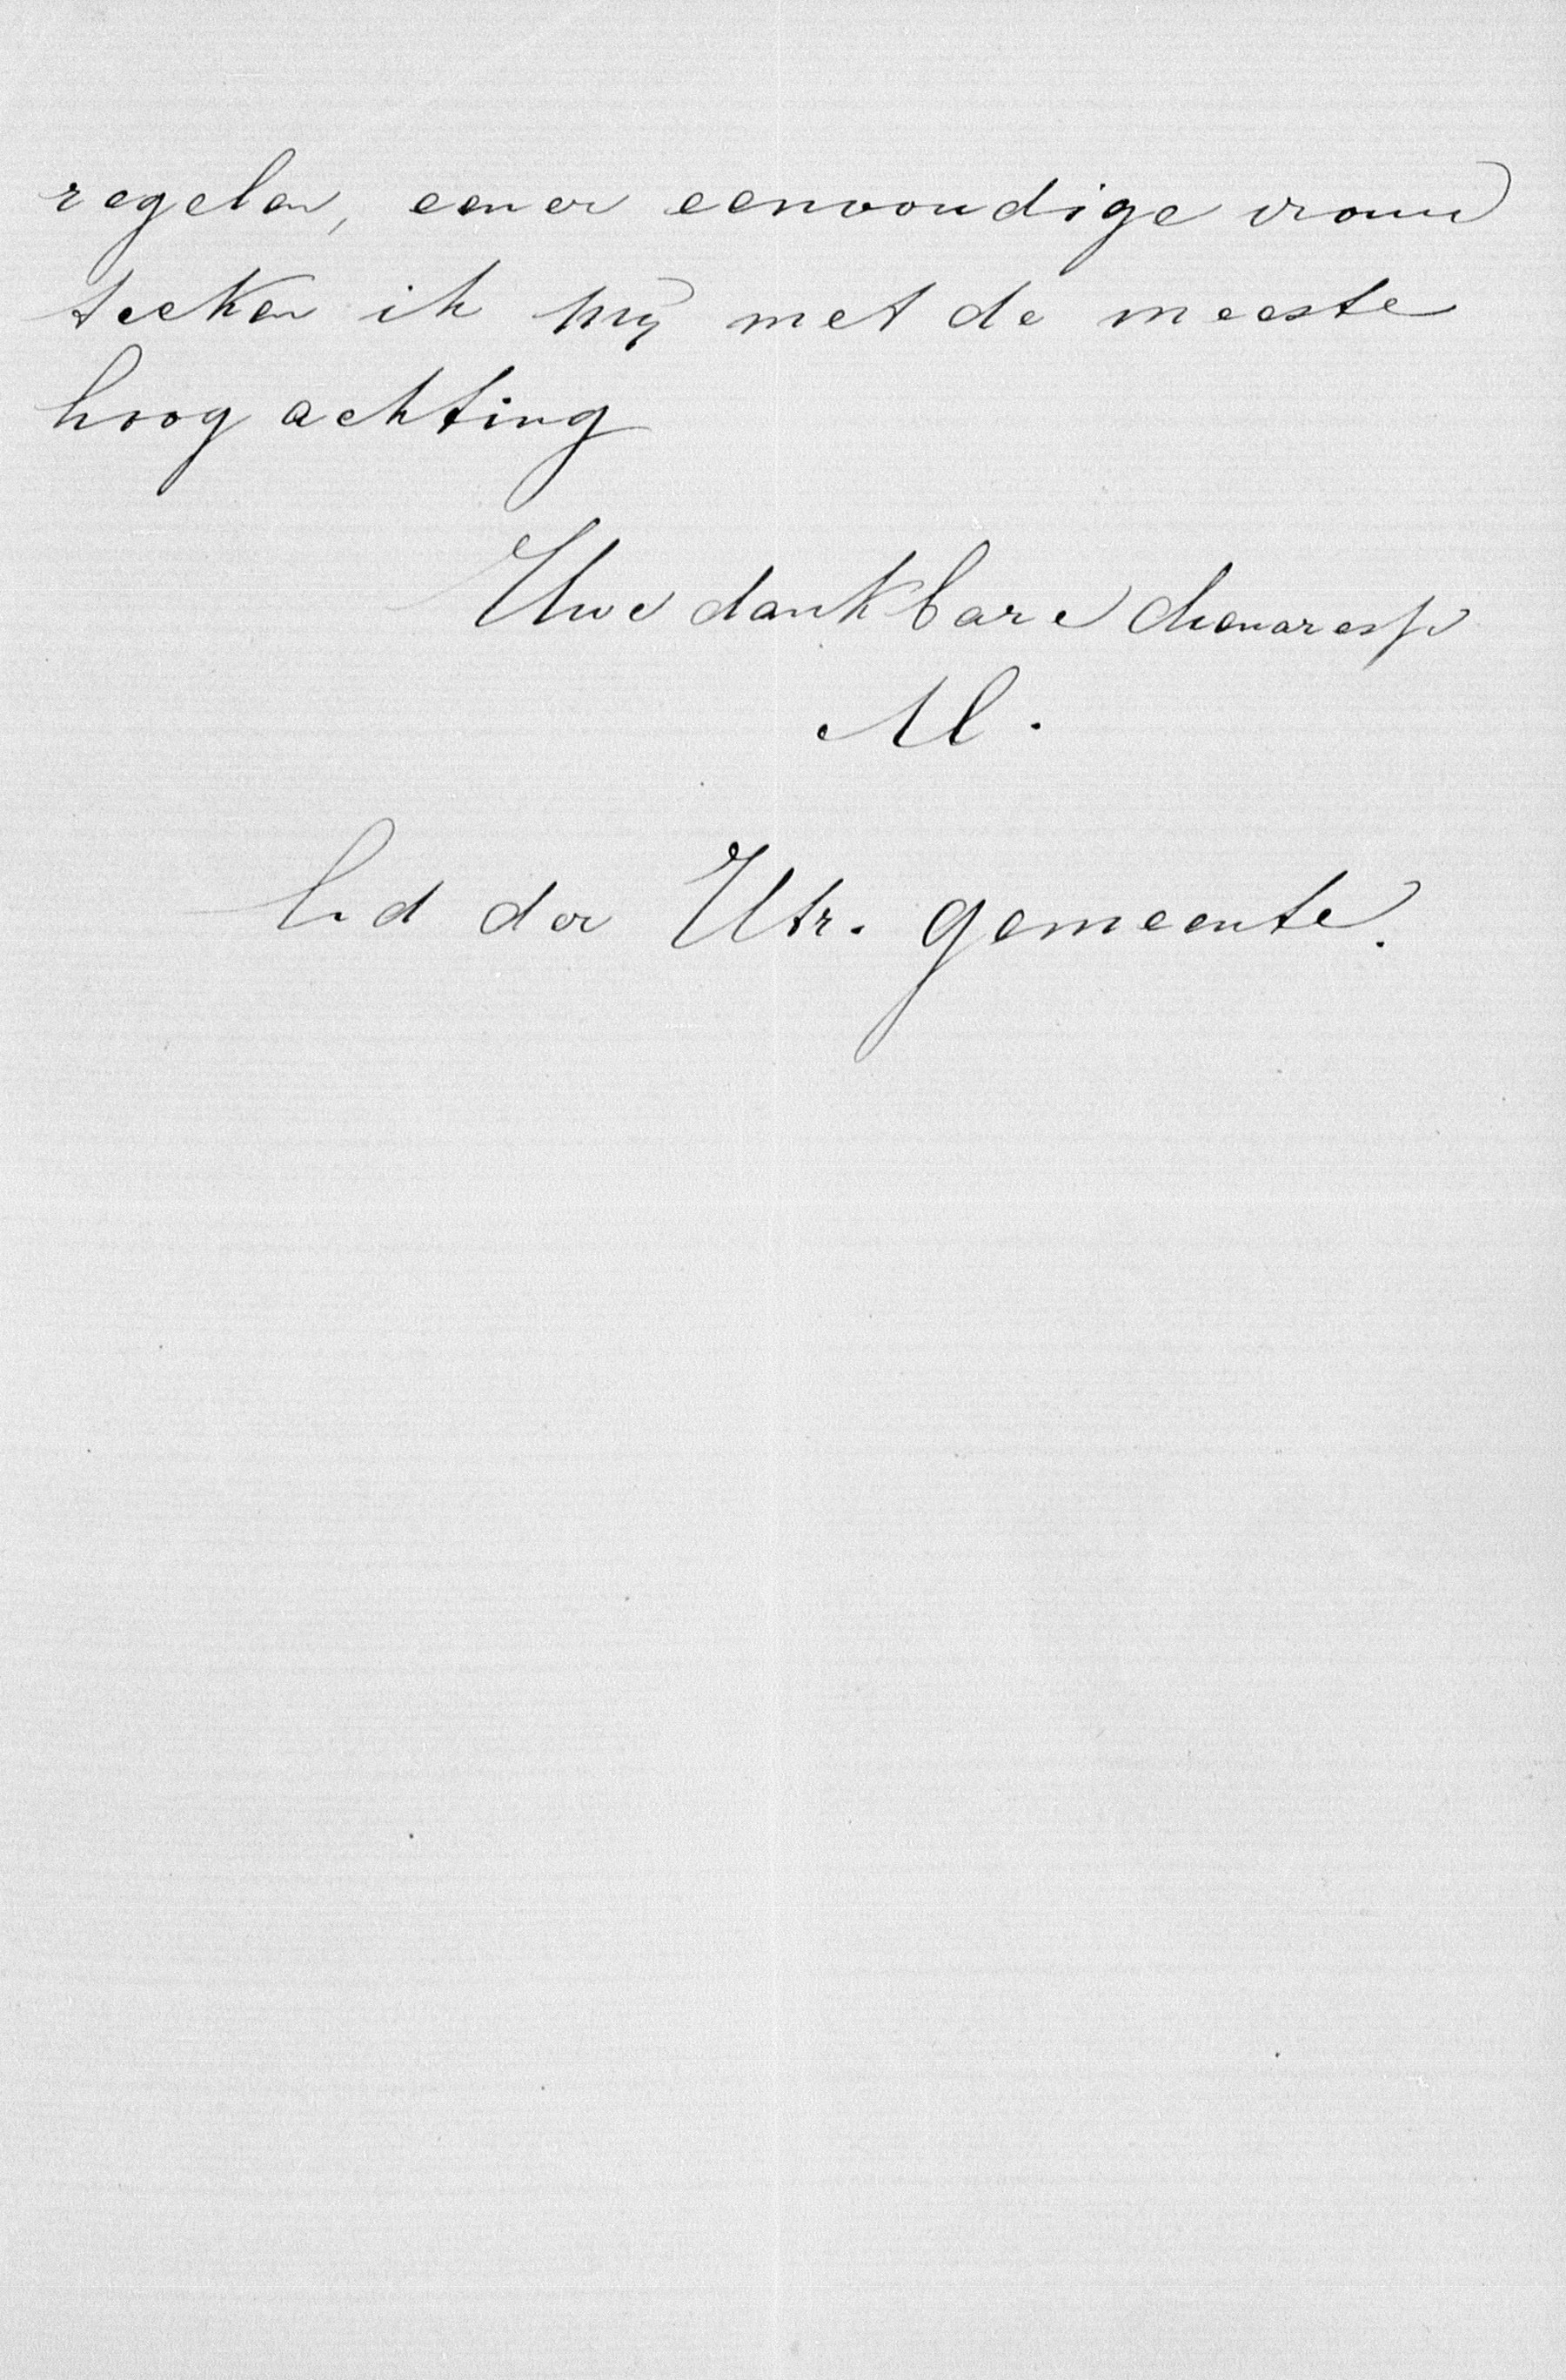 regelen, eener eenvoudige vrouw
teeken ik mij met de meeste
hoogachting
Uwe dankbare dienaresse
M.
Lid der Utr. gemeente.